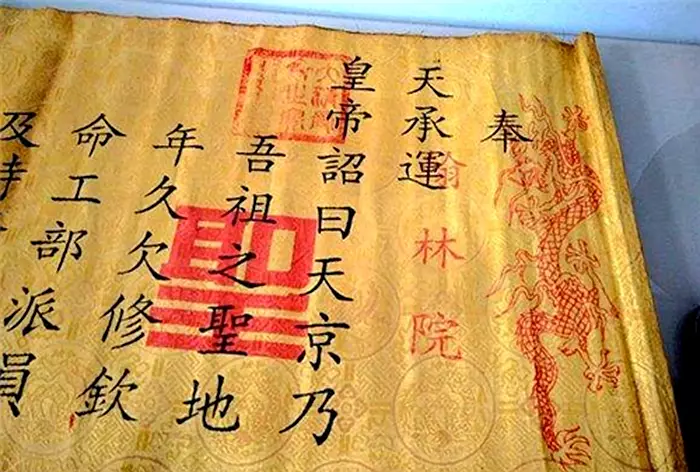 奉
天承運
皇帝詔曰天京乃
吾祖之聖地
年久欠修欽
命工部派員
及
翰林院
聖